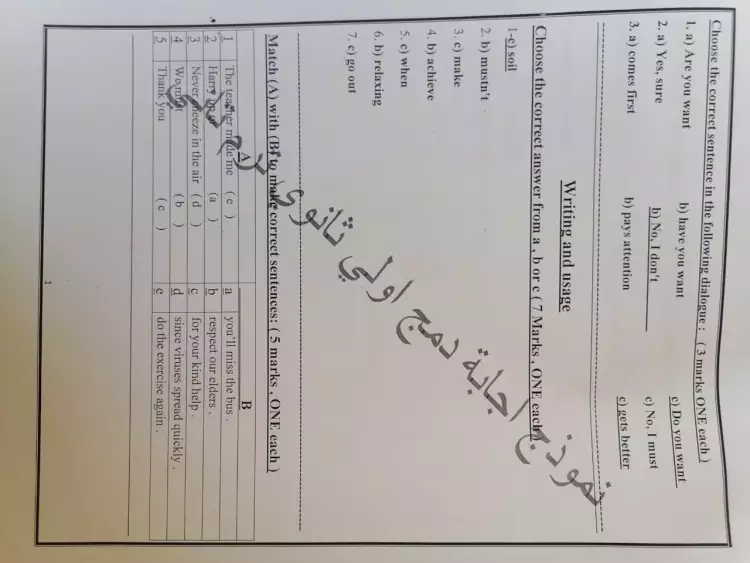 Choose the correct sentence in the following dialogue : ( 3 marks ONE each )
1. a) Are you want b) have you want c) Do you want
2. a) Yes, sure b) No, I don't c) No, I must
3. a) comes first b) pays attention c) gets better
Writing and usage
Choose the correct answer from a , b or c ( 7 Marks , ONE each )
1-c) soil
2. b) mustn't
3. c) make
4. b) achieve
5. c) when
6. b) relaxing
7. c) go out
Match (A) with (B) to make correct sentences: ( 5 marks , ONE each )
A B
1 The teacher made me ( e ) a you'll miss the bus .
2 Harry ( a ) b respect our elders .
3 Never sneeze in the air ( d ) c for your kind help .
4 We must ( b ) d since viruses spread quickly .
5 Thank you ( c ) e do the exercise again .
1
نموذج اجابة دمج اولي ثانوي ترم ثاني